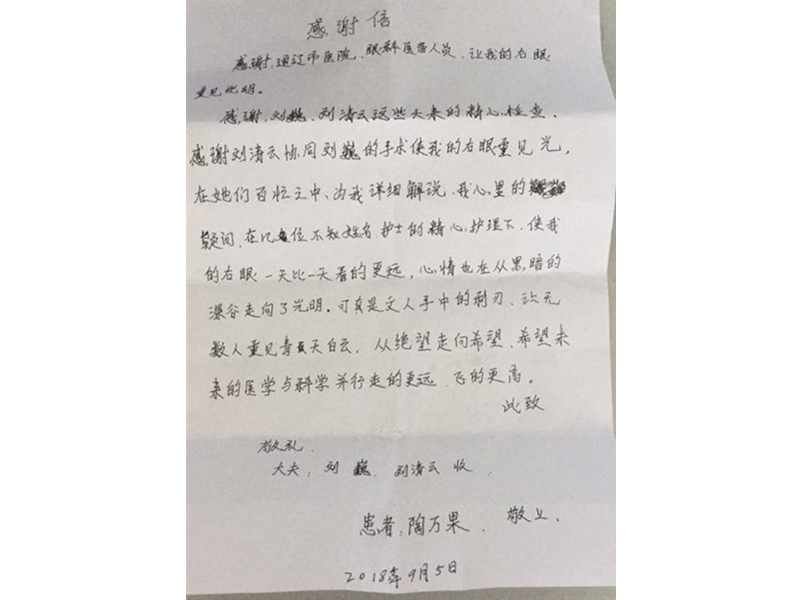 感谢信
感谢，通辽市医院、眼科医务人员，让我的右眼
重见光明。
感谢，刘巍，刘清云这些天来的精心检查，
感谢刘清云协同刘巍的手术使我的右眼重见光，
在她们百忙之中、为我详细解说，我心里的
疑问，在几位不知姓名护士的精心护理下、使我
的右眼一天比一天看的更远，心情也在从黑暗的
深谷走向了光明。可真是文人手中的利刃、让无
数人重见青天白云，从绝望走向希望、希望未
来的医学与科学并行走的更远 飞的更高。
此致
敬礼
大夫，刘巍、刘清云收，
患者，陶万果、敬上，
2018年9月5日